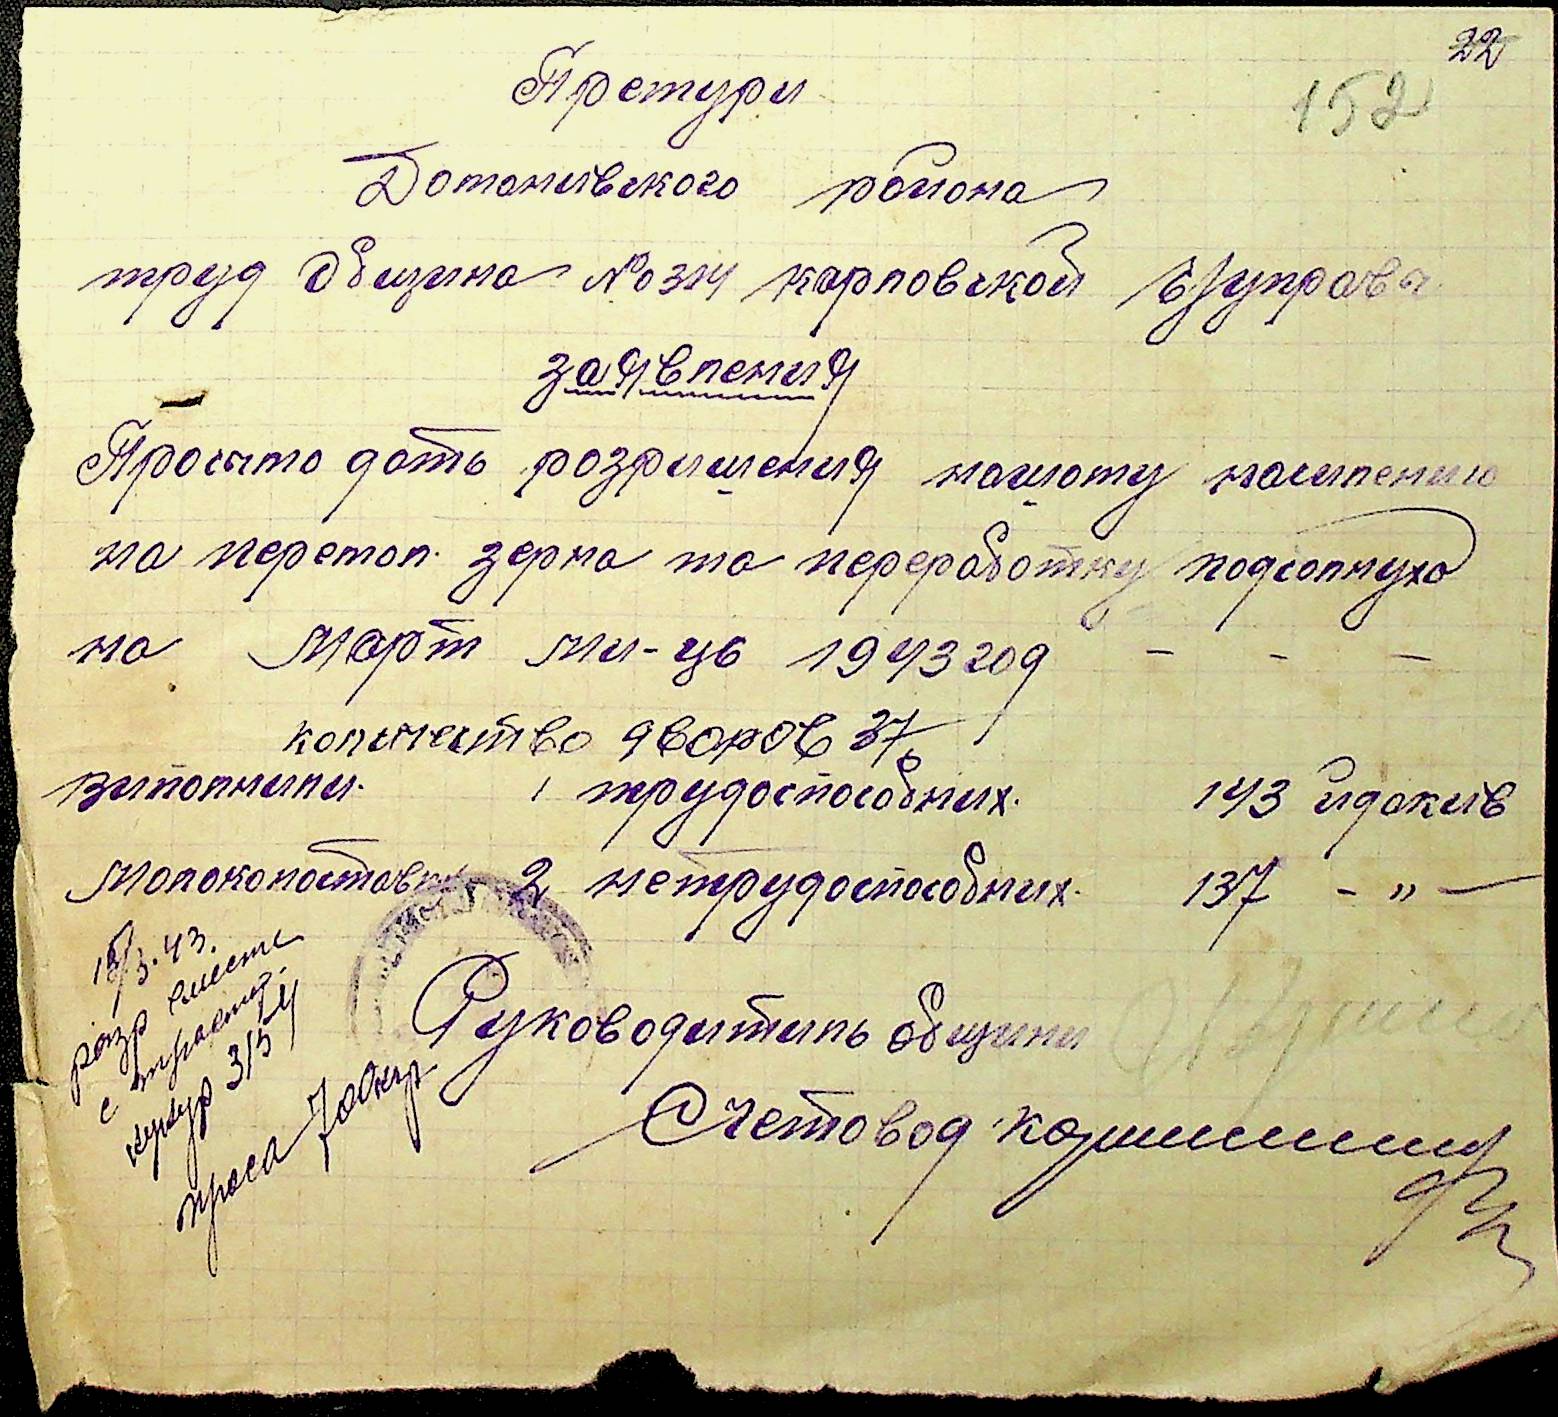 22
152
Претури
Дотонивского района
труд община №0314 карповской с/управы
заявления
Просимо дать розришения нашому насилению
на перемол. зерна та переработку подсолнуха
на Март ми-ць 1943 год - - -
количество дворов 37
виполнили. 1 трудоспособних. 143 идокив
Молокопоставки 2 нетрудоспособних. 137 - " -
15/3.43.
разр смести
с
3/5
проса 700кгр
Руководитиль общини
Счетовод